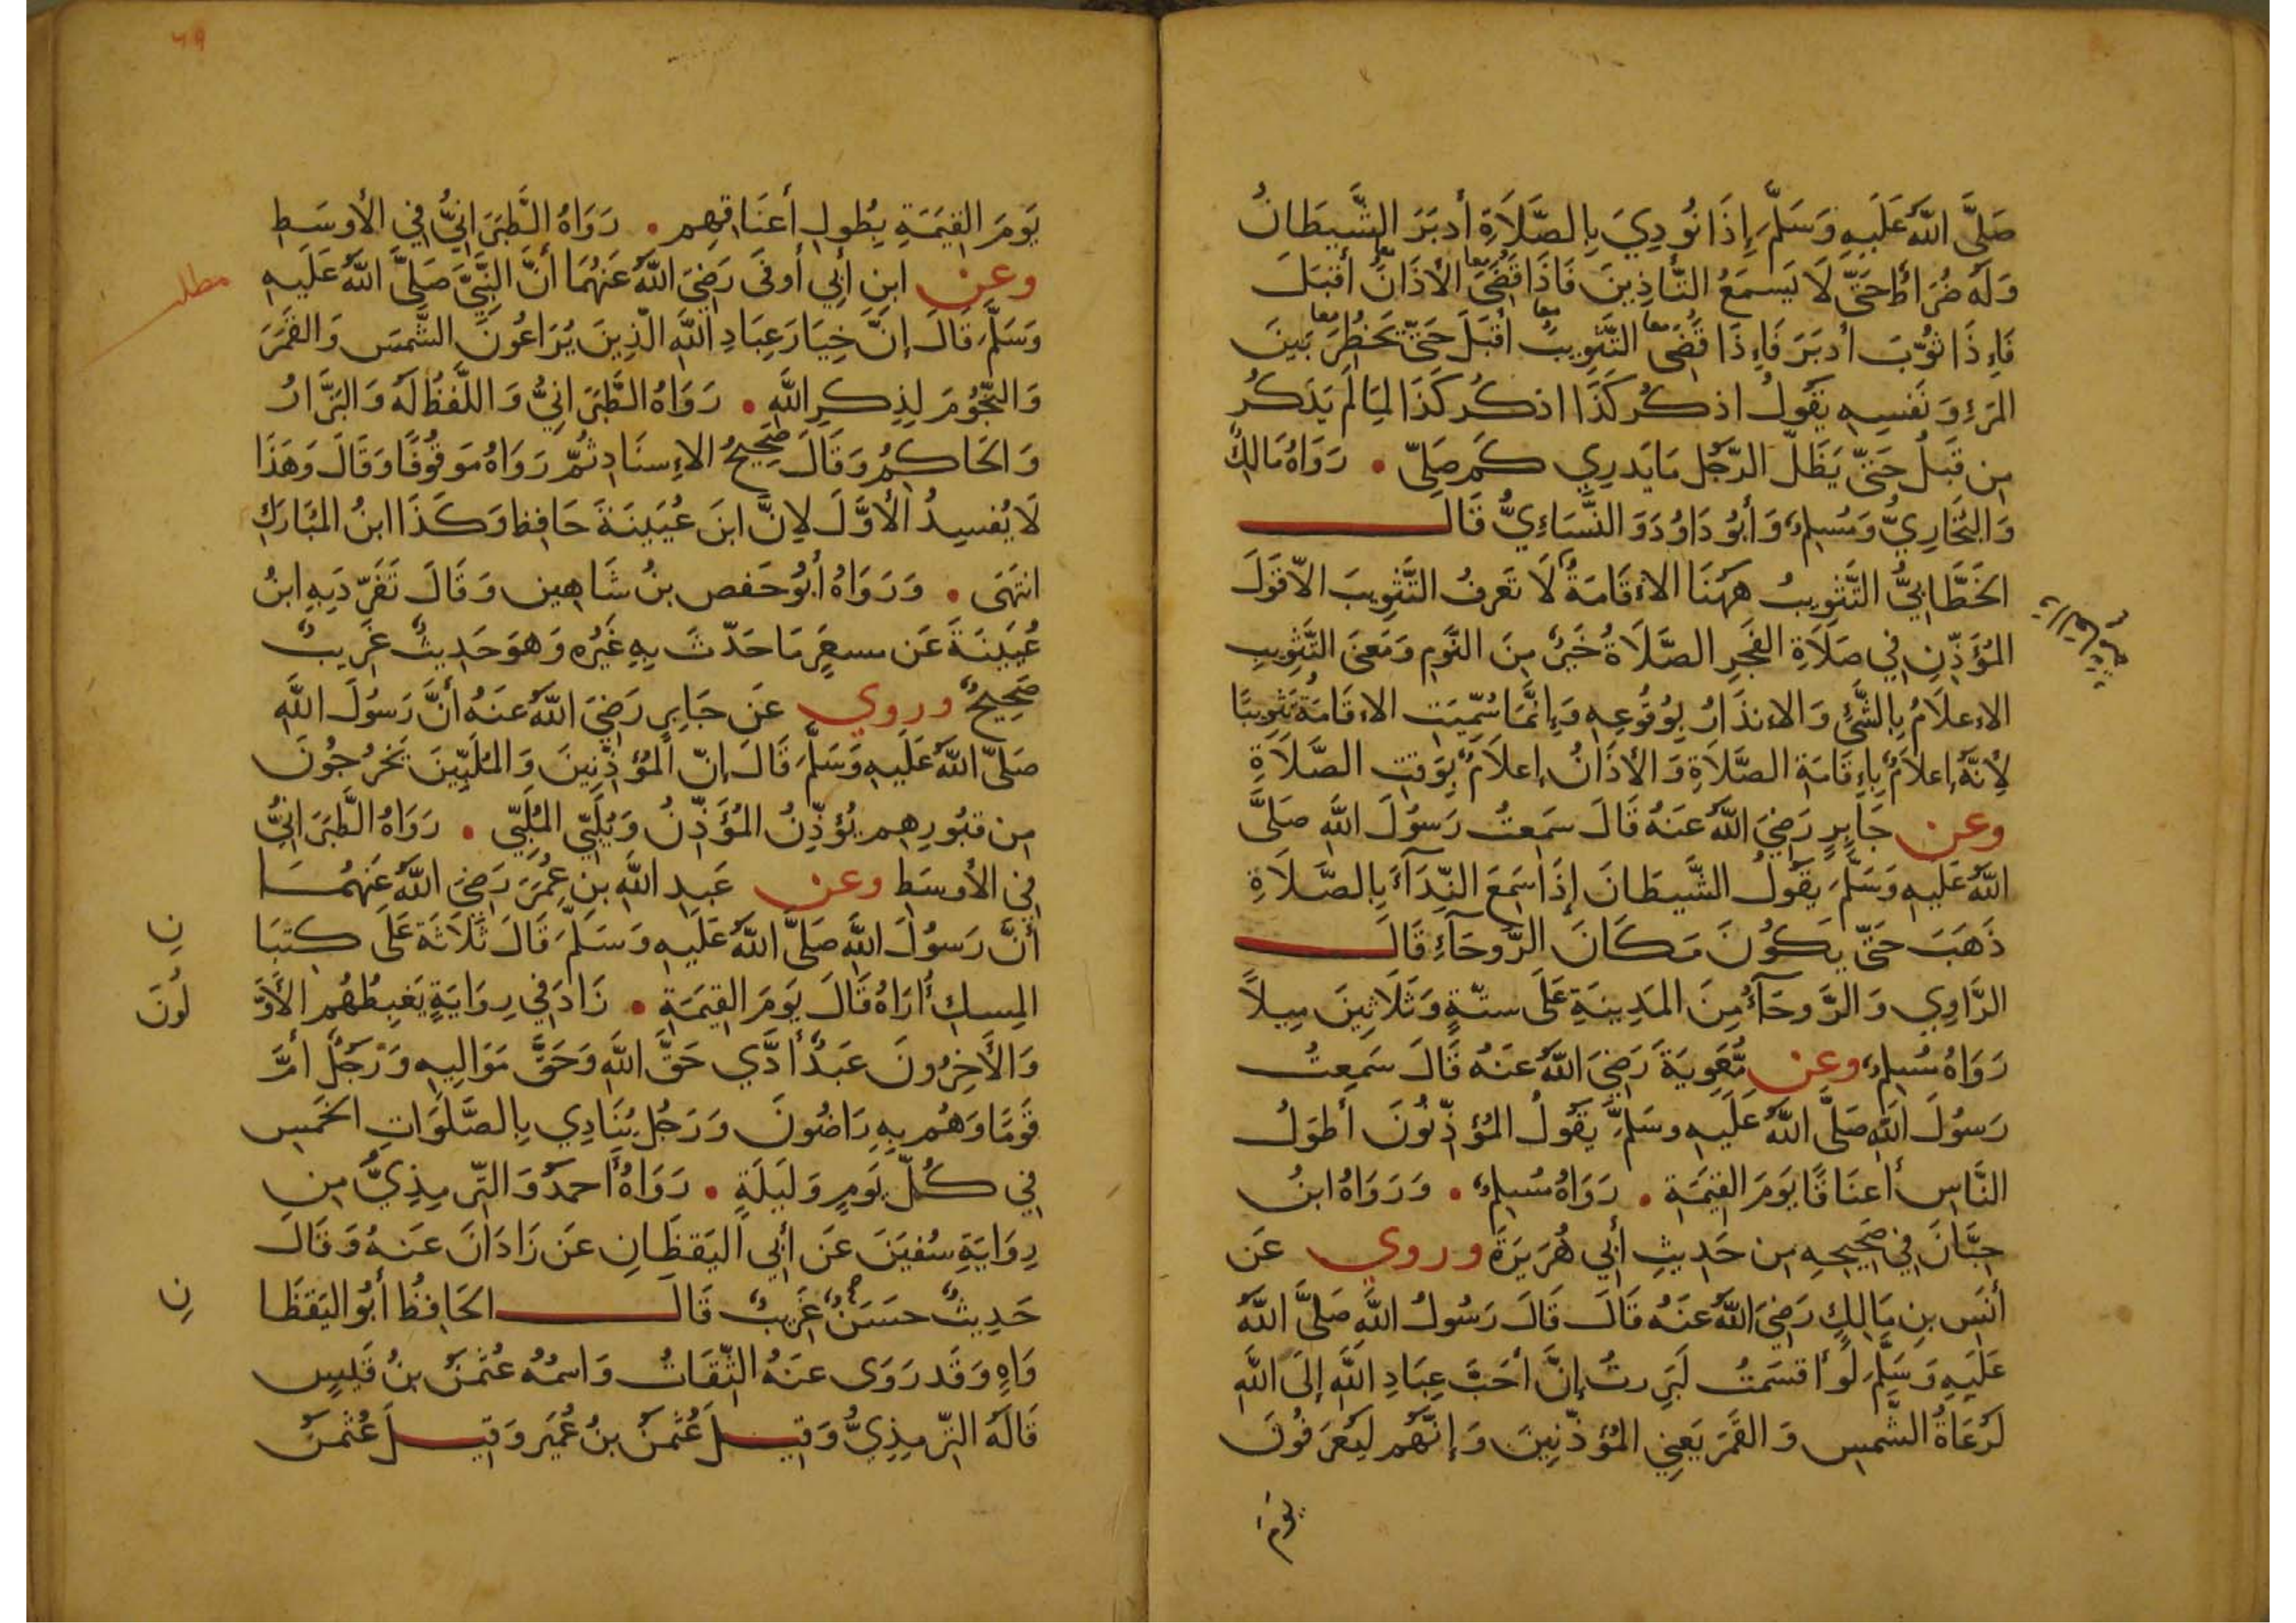 صَلَّى اللّهُ عَلَيهِ وَسَلَّمَ إِذَا نُودِيَ بِالصَّلَاةِ أَدبَرَ الشَّيطَانُ
وَلَهُ ضُرَاطٌ حَتَّى لَا يَسمَعُ التَّأذِينَ فَاذَا قُضِيَ الأَذَانُ أَقبَلَ
فَإِذَا ثُوِّبَ أَدبَرَ فَإِذَا قُضَى التَّثوِيبُ أَقبَلَ حَتَّى يَخطُرَ بَينَ
المَرءِ وَنَفسِهِ يَقُولُ اذكُر كَذَا اذكُر كَذَا لِمَا لَم يَذكُر
مِن قَبلُ حَتَّى يَظَلَّ الرَّجُلُ مَا يَدرِي كَم صَلَّى . رَوَاهُ مَالِكٌ
وَالبُخَارِيُّ وَمُسلِمٌ وَأَبُو دَاوُدَ وَالنَّسَاءِيُّ قَالَ
الخَطَّابِيُّ التَّثوِيبُ هَهُنَا الاءقَامَةُ لَا تَعرِفُ التَّثوِيبَ الاَّ قَولَ
المُؤَذِّنِ فِي صَلَاةِ الفَجرِ الصَّلَاةُ خَيرٌ مِنَ النَّومِ وَمَعنَى التَّثوِيبِ
الاءعلَامُ بِالشَّيءِ وَالاءنذَارُ بِوُقُوعِهِ وَإِنَّمَا سُمِّيَتِ الاءقَامَةُ تَثوِيبًا
لأَنَّهُ إِعلَامٌ بِإِقَامَةِ الصَّلَاةِ وَالأَذَانُ إِعلَامٌ بِوَقتِ الصَّلَاةِ
وعن جَابِرٍ رَضِيَ اللّهُ عَنهُ قَالَ سَمِعتُ رَسُولَ اللّهِ صَلَّى
اللّهُ عَلَيهِ وَسَلَّمَ يَقُولُ الشَّيطَانَ إِذَا سَمِعَ النِّدَآءَ بِالصَّلَاةِ
ذَهَبَ حَتَّى يَكُونَ مَكَانَ الرَّوحَآءِ قَالَ
الرَّاوِي وَالرَّوحَآءُ مِنَ المَدِينَةِ عَلَى ستَّةٍ وَثَلَاثِينَ مِيلاً
رَوَاهُ مُسلِمٌ وعن مُعَوِيَةَ رَضِيَ اللّهُ عَنهُ قَالَ سَمِعتُ
رَسُولَ اللّهِ صَلَّى اللّهُ عَلَيهِ وسَلَّمَ يَقُولُ المُؤَذِّنُونَ أَطوَلُ
النَّاسِ أَعنَاقًا يَومَ القِيَمَةِ . رَوَاهُ مُسلِمٌ . وَرَوَاهُ ابنُ
حِبَّانَ فِي صَحِيحِهِ مِن حَدِيثِ أَبِي هُرَيرَةَ وروي عَن
أَنَسِ بنِ مَالِكٍ رَضِيَ اللّهُ عَنهُ قَالَ قَالَ رَسُولُ اللّهِ صَلَّى اللّهُ
عَلَيهِ وَسَلَّمَ لَو أَقسَمتُ لَبَرِرتُ إِنَّ أَحَبَّ عِبَادِ اللّهِ إِلَى اللّهِ
لَرُعَاةُ الشَّمسِ وَالقَمَرَ يَعنِي المُؤَذِّنِينَ وَإِنَّهُم لَيُعرَفُونَ
يَومَ
٦٩
يَومَ القِيَمَةِ بِطُولِ أَعنَاقِهِم . رَوَاهُ الطَّبَرَانِيُّ فِي الأَوسَطِ
وعن ابنِ أَبِي أَوفَى رَضِيَ اللّهُ عَنهُمَا أَنَّ النَّبِيَّ صَلَّى اللّهُ عَلَيهِ
مطلب
وَسَلَّمَ قَالَ إِنَّ خِيَارَ عِبَادِ اللّهِ الَّذِينَ يُرَاعُونَ الشَّمسَ وَالقَمَرَ
وَالنُّجُومَ لِذِكرِ اللّهِ . رَوَاهُ الطَّبَرَانِيُّ وَاللَّفظُ لَهُ وَالبَزَّارُ
وَالحَاكِمُ وَقَالَ صَحِيحُ الاءِسنَادِ ثُمَّ رَوَاهُ مَوقُوفًا وَقَالَ وَهَذَا
لَا يُفسِدُ الأَوَّلَ لِانَّ ابنَ عُيَينَةَ حَافِظ وَكَذَا ابنُ المُبَارَكِ
انتَهَى . وَرَوَاهُ أَبُو حَفص بنُ شَاهِين وَقَالَ تَفَرَّدَ بِهِ ابنُ
عُيَينَةَ عَن مسعَرٍ مَا حَدَّثَ بِهِ غَيرُه وَهوَ حَدِيثٌ غَرِيبٌ
صَحِيحٌ وروي عَن جَابِرٍ رَضِيَ اللّهُ عَنهُ أَنَّ رَسُولَ اللّهِ
صَلَّى اللّهُ عَلَيهِ وَسَلَّمَ قَالَ إِنَّ المُؤَذِّنِينَ وَالمُلَبِّينَ يَخرُجُونَ
مِن قبُورِهِم يُؤَذِّنُ المُؤَذِّنُ وَيُلَبِّي المُلَبِّي . رَوَاهُ الطَّبَرَانِيُّ
فِي الأَوسَطِ وعن عَبدِ اللّهِ بنِ عُمَرَ رَضِيَ اللّهُ عَنهُمَا
أَنَّ رَسُولَ اللّهِ صَلَّى اللّهُ عَلَيهِ وَسَلَّمَ قَالَ ثَلَاثَةٌ عَلَى كثبَا
نِ
المِسكِ أُرَاهُ قَالَ يَومَ القِيَمَةِ . زَادَ فِي رِوَايَةٍ يَغبِطُهُم الأَوَّ
لُونَ
وَالآخِرُونَ عَبدٌ أَدَّي حَقَّ اللّهِ وَحَقَّ مَوَالِيهِ وَرَجُلٌ أَمَّ
قَومًا وَهُم بِهِ رَاضُونَ وَرَجُلٌ يُنَادِي بِالصَّلَوَاتِ الخَمسِ
فِي كُلِّ يَومٍ وَلَيلَةٍ . رَوَاهُ أَحمَدُ وَالتِّرمِذِيُّ مِن
رِوَايَةِ سُفيَنَ عَن أَبِي اليَقظَانِ عَن زَادَانَ عَنهُ وَقَالَ
حَدِيثٌ حسَنٌ غَرِيبٌ قَالَ الحَافِظُ أَبُو اليَقظَا
نِ
وَاهٍ وَقَد رَوَى عَنهُ الثِّقَاتُ وَاسمُهُ عُثمَنُ بنُ قَيسٍ
قَالَهُ التِّرمِذِيُّ وَقِيلَ عُثمَنُ بنُ عُمَيرٍ وَقِيلَ عُثمَنُ